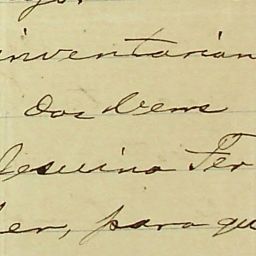 inventarian
dos bens
Jesuina Fer
er, para qu